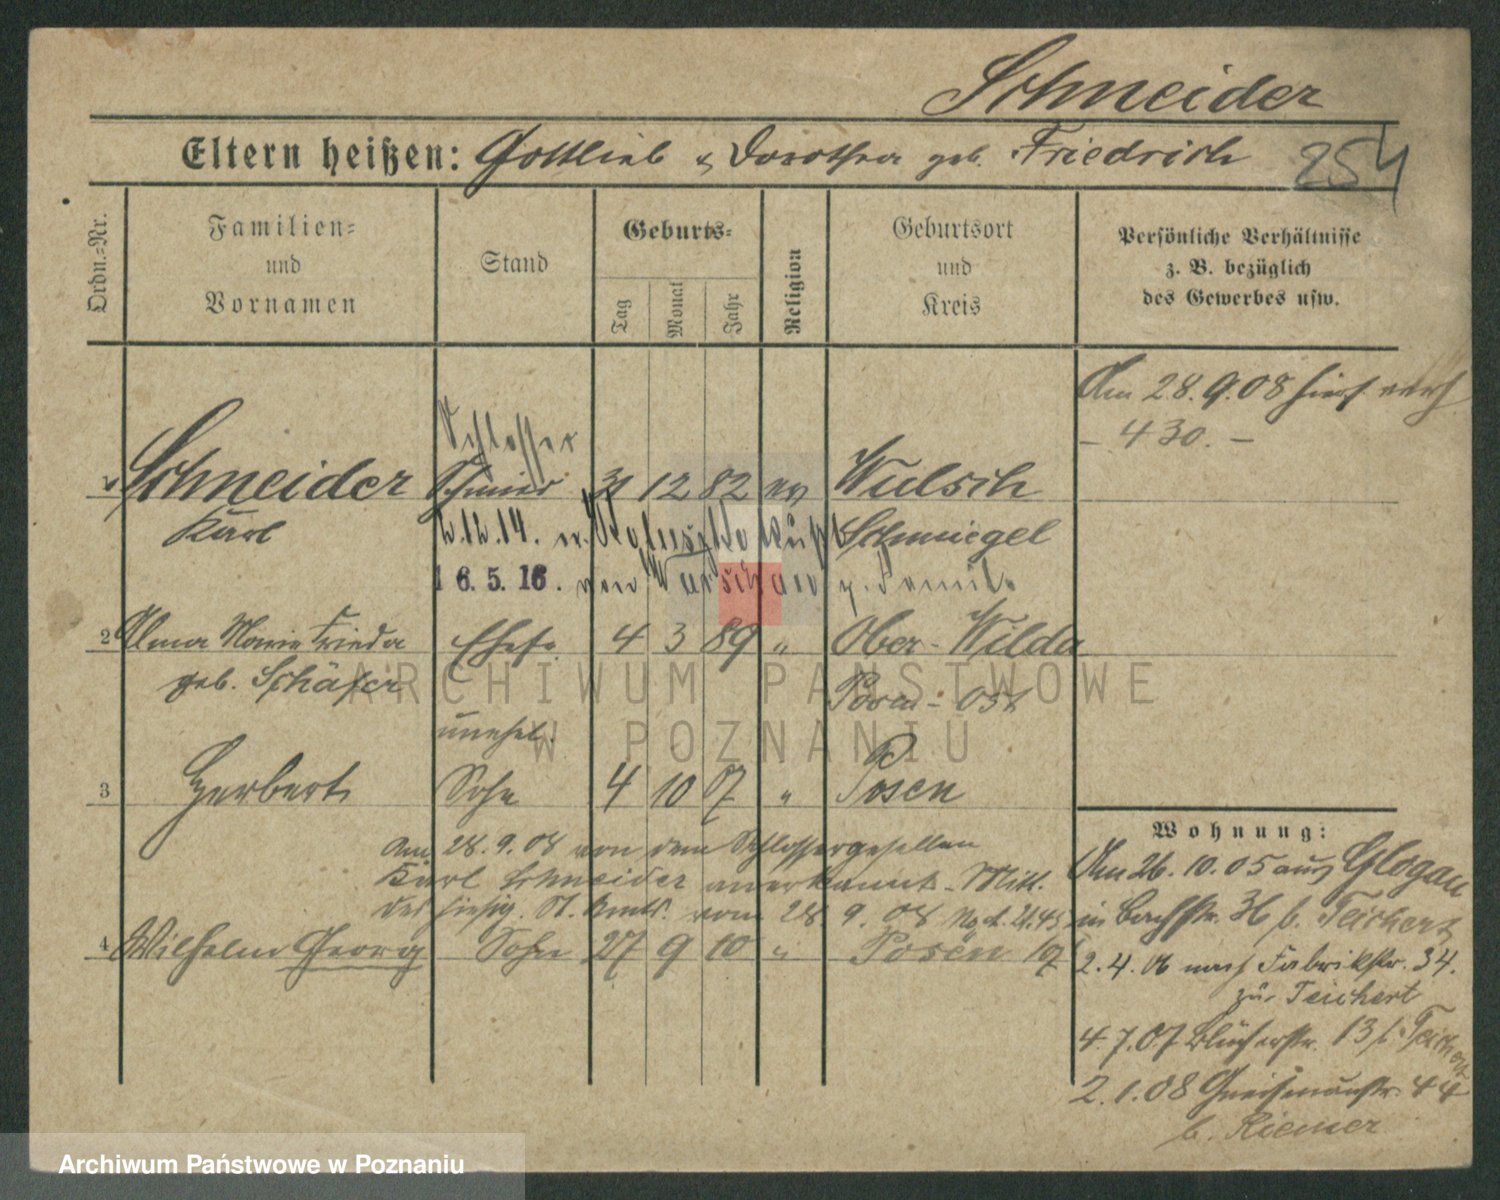 Schneider
Eltern heißen: Gottlieb & Dorothea geb. Friedrich
254
Ordn.-Nr.
Familien-
und
Vornamen
Stand
Geburts-
Tag
Monat
Jahr
Religion
Geburtsort
und
Kreis
Persönliche Verhältnisse
z. B. bezüglich
des Gewerbes usw.
Am 28.9.08 hier
- 430. -
Schlosser
1 Schneider Schmied 31 12 82 ev Wulsch
Karl 2.12.14. Schmiegel
16.5.16. von Warschau z. Famil.
2 Alma Marie Frieda Ehefr 4 3 89 " Ober-Wilda
geb. Schäfer Posen-Ost
unehel.
3 Herbert Sohn 4 10 07 " Posen
Am 28.9.08 von dem Schlossergesellen
Karl Schneider anerkannt. Mitt.
des hiesig. St. Amts. vom 28.9.08
4 Wilhelm Georg Sohn 27 9 10 " Posen
Wohnung:
Am 26.10.05 aus Glogau
in Bachstr. 36 b. Teichert
2.4.06 nach Fabrikstr. 34.
zu Teichert
4.7.07 Blücherstr. 13 b. Teichert
2.1.08 Gneisenaustr. 44
b. Riemer
ARCHIWUM PAŃSTWOWE
W POZNANIU
Archiwum Państwowe w Poznaniu